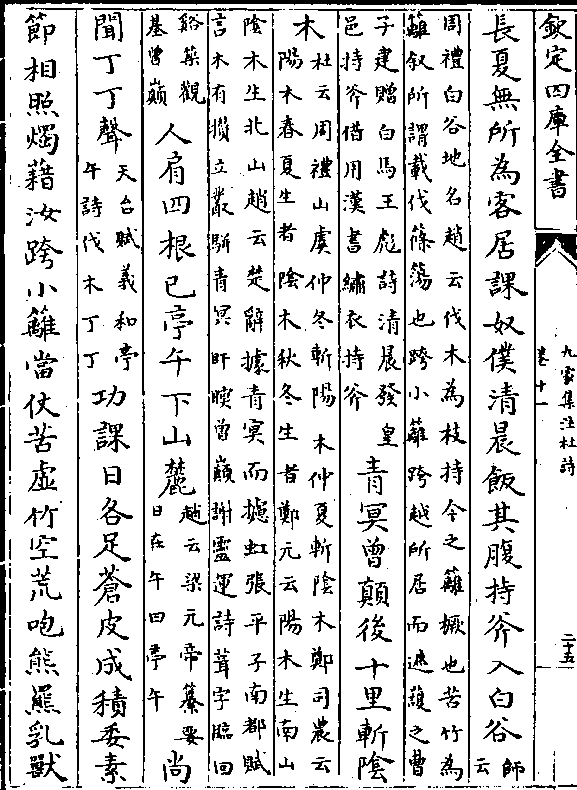 欽定四庫全書
九家集注杜詩
卷十一
二十五
長夏無所為客居課奴僕清晨飯其腹持斧入白谷師云
周禮白谷地名趙云伐木為枝持今之籬橛也苦竹為
籬叙所謂載伐篠簜也跨小籬跨越所居而遮護之曹
子建贈白馬王彪詩清晨發皇
邑持斧借用漢書繡衣持斧
青冥曾顛後十里斬陰
木
杜云周禮山虞仲冬斬陽木仲夏斬陰木鄭司農云
陽木春夏生者陰木秋冬生者鄭元云陽木生南山
陰木生北山趙云楚辭據青冥而攄虹張平子南都賦
言木有攢立叢駢青冥盰瞑曾巔謝靈運詩葺宇臨回
谿築觀
基曾巔
人肩四根已亭午下山麓
趙云梁元帝纂要
日在午曰亭午
尚
聞丁丁聲
天台賦義和亭
午詩伐木丁丁
功課日各足蒼皮成積委素
節相照燭藉汝跨小籬當仗苦虛竹空荒咆熊羆乳獸